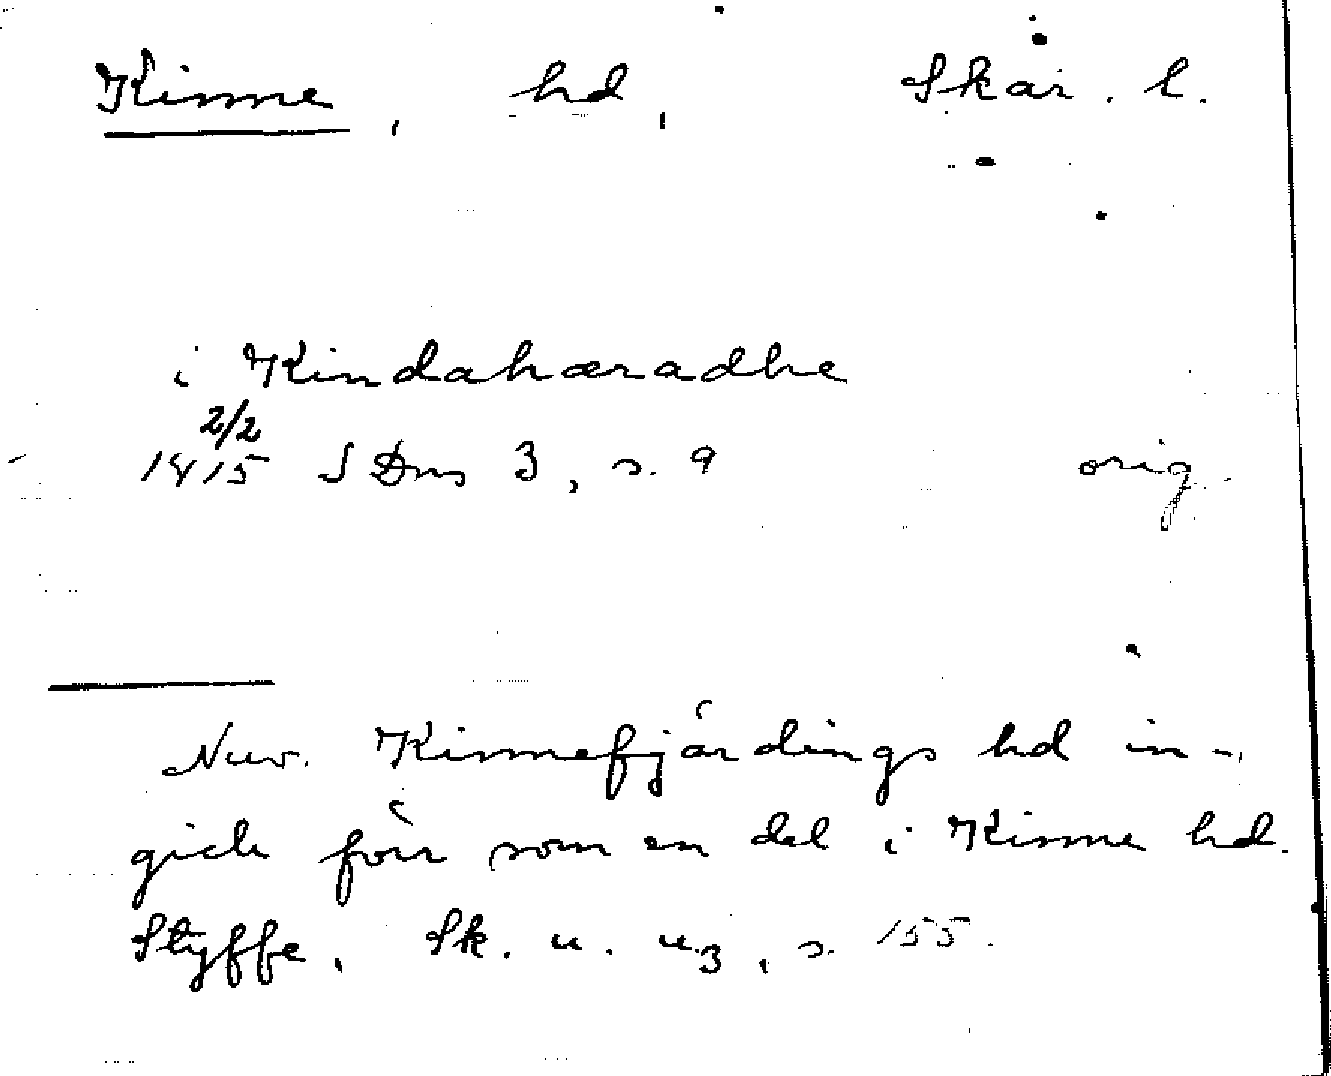 Kinne, hd, Skar. l.
i Kindahæradhe
2/2
1415 SDns 3, s. 9 orig.
Nuv. Kinnefjärdings hd in-
gick förr som en del i Kinne hd.
Styffe, Sk. u. u.3, s. 155.